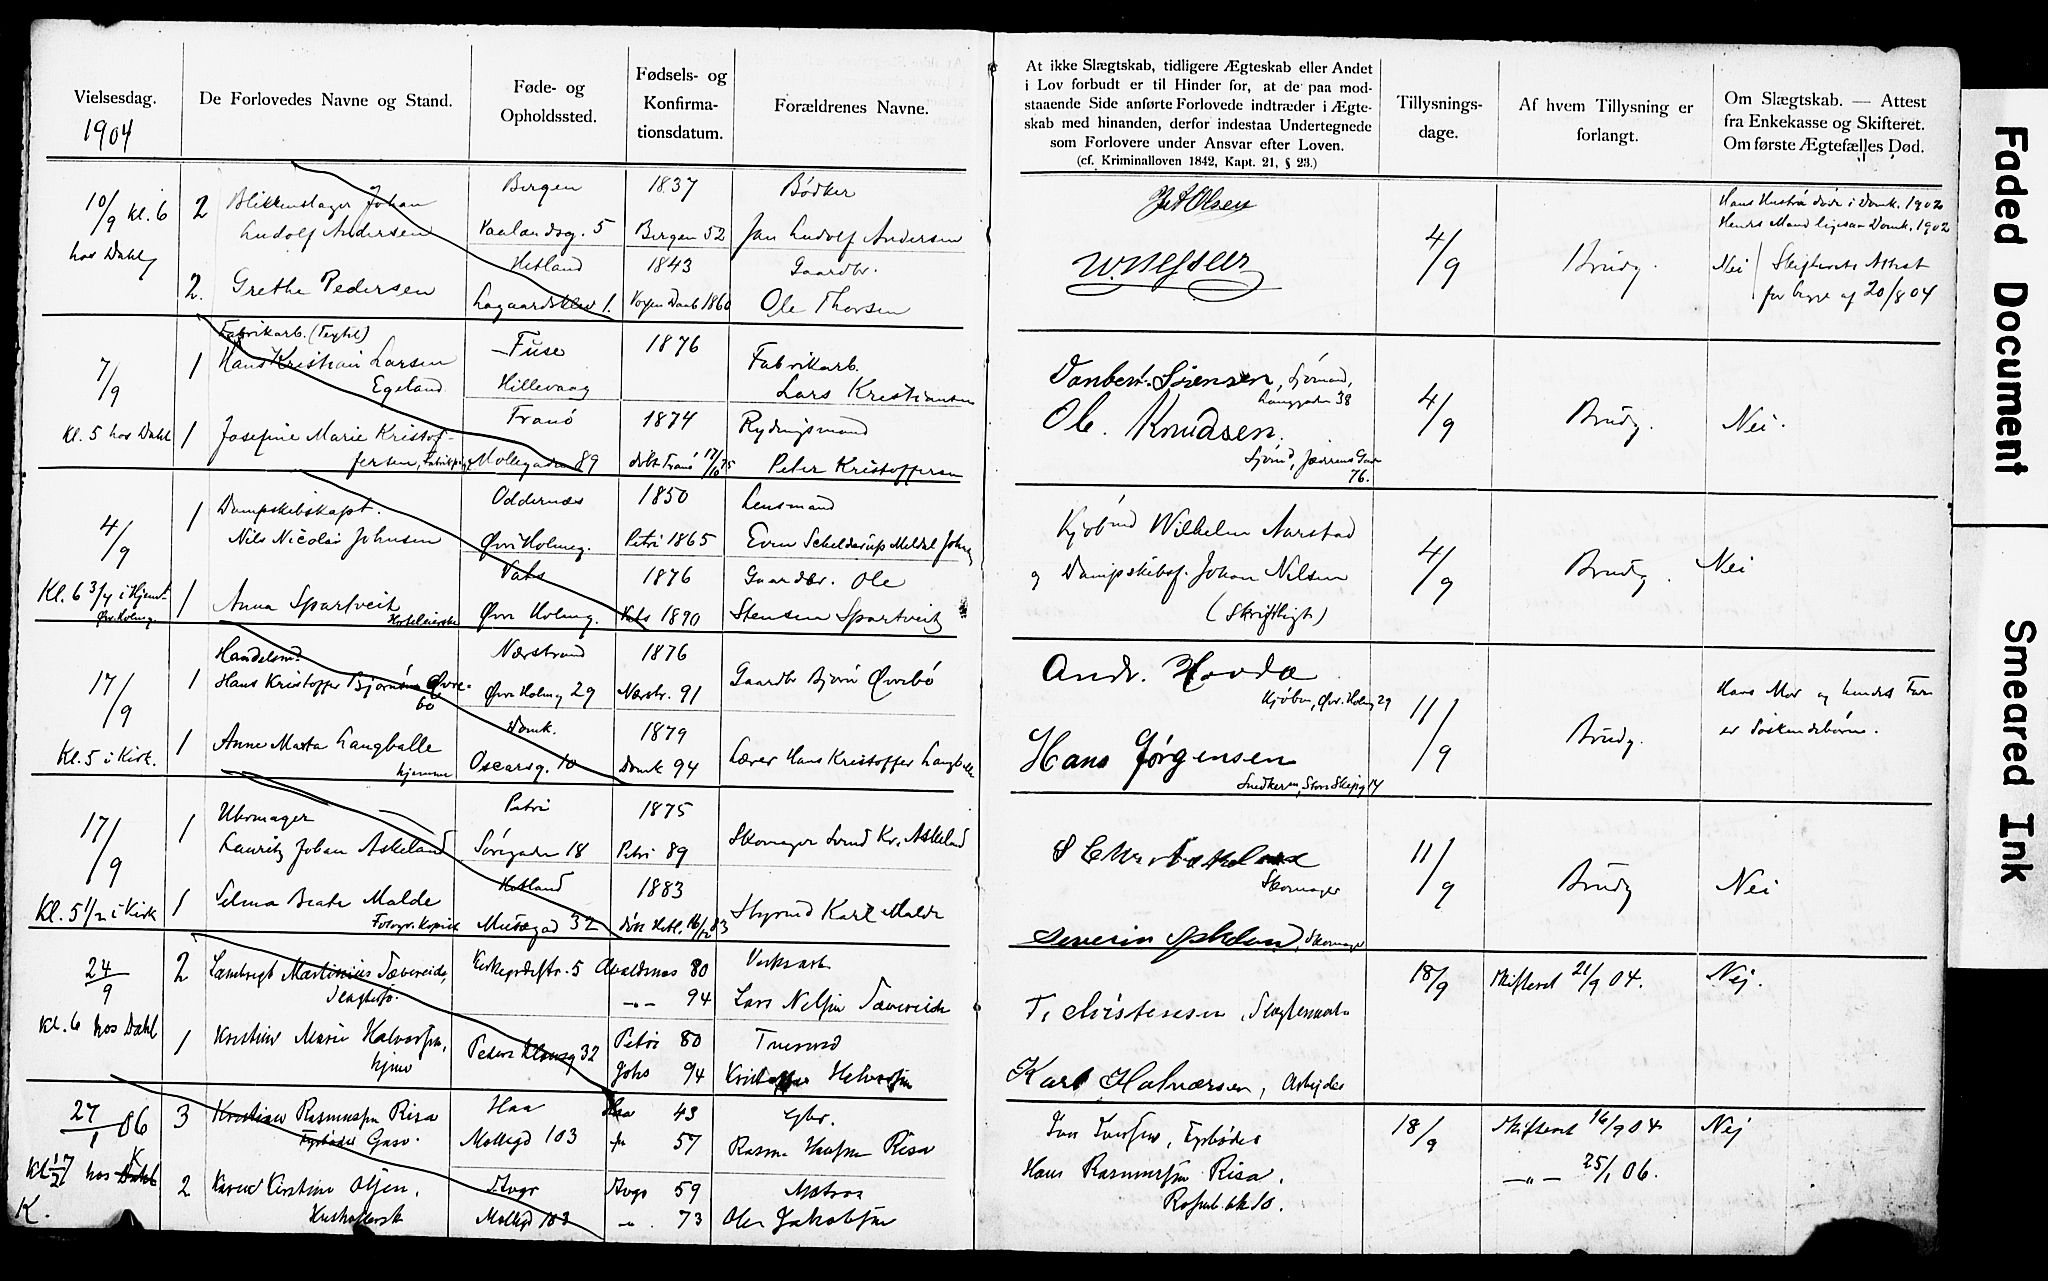 Vielsesdag.
1904
De Forlovedes Navne og Stand.
Føde- og
Opholdssted.
Fødsels- og
Konfirma-
tionsdatum.
Forældrenes Navne.
At ikke Slægtskab, tidligere Ægteskab eller Andet
i Lov forbudt er til Hinder for, at de paa mod-
staaende Side anførte Forlovede indtræder i Ægte-
skab med hinanden, derfor indestaa Undertegnede
som Forlovere under Ansvar efter Loven.
(cf. Kriminalloven 1842, Kapt. 21, § 23.)
Tillysnings-
dage.
Af hvem Tillysning er
forlangt.
Om Slægtskab. — Attest
fra Enkekasse og Skifteret.
Om første Ægtefælles Død.
10/9 kl. 6
hos Dahl
2
Blikkenslager Johan
Ludolf Andersen
Bergen
Vaalandsg. 5
1837
Bergen 52
Bødker
Jan Ludolf Andersen
2.
Grethe Pedersen
Hetland
Lagaardsklev 1.
1843
1860
Gaardbr.
Ole Thorsen
Olsen
4/9
Brudg.
Hans Hustru døde i Domk. 1902
Hendes Mand ligesaa Domk. 1902
Nei
Skifterets Attest
af 20/8 04
7/9
Kl. 5 hos Dahl
1
Fabrikarb. (Teglv.)
Hans Kristian Larsen
Egeland
Fuse
Hillevaag
1876
Fabrikarb.
Lars Kristiansen
1
Josefine Marie Kristof-
fersen, Fabrikpige
Tranø
Møllegaden 89
1874
døbt Tranø 17/10 75
Rydningsmand
Peter Kristoffersen
Sørensen, Sjømand,
Langgaden 38
Ole Knudsen.
Sjømd, Jædrens Gade
76.
4/9
Brudg.
Nei.
4/9
Kl. 6 3/4 i Hjemt
Øv. Holmg.
1
Dampskibskapt.
Nils Nicolai Johnsen
Oddernes
Øvr. Holmeg.
1850
Petri 1865
Lensmand
Even Schelderup Meldal Johns
1
Anna Spartveit
Hoteleierske
Vats
Øvre Holmeg.
1876
Vats 1890
Gaardbr. Ole
Stensen Spartveit
Kjøbmd Wilhelm Aarstad
og Dampskibsf. Johan Nilsen
(Skriftligt)
4/9
Brudg.
Nei
17/9
Kl. 5 i Kirk.
1
Handelsmd.
Hans Kristoffer Bjørnsen Øvre-
bø
Nærstrand
Øvre Holmeg 29
1876
Nærstr. 91
Gaardbr Bjørn Øvrebø
1
Anne Marta Langballe
hjemme
Domk.
Oscarsg. 10
1879
Domk 94
Lærer Hans Kristoffer Langballe
Andr. Hovda
Kjøbm, Øvr. Holmeg 29
Hans Jørgensen
Snedkerm, Store Skipg 14
11/9
Brudg.
Hans Mor og hendes Far
er Søskendebørn.
17/9
Kl. 5 1/2 i Kirk
1
Uhrmager
Lauritz Johan Askeland
Petri
Søregaden 18
1875
Petri 89
Skomager Svend Kr. Askeland
1
Selma Beate Malde
Fotogr. Kopist
Hetland
Musægad 32
1883
døbt Hetl. 16/12 83
Styrmd Karl Malde
Skomager
Severin Askeland, Skomager
11/9
Brudg
Nei
24/9
Kl. 6 hos Dahl
2
Lambregt Martinius Tævereide,
Slagterfo.
Kirkegrdsstr. 5
Avaldsnes 80
-"- 94
Verksarb
Lars Nelsen Tævereide
1
Kristine Marie Halvorsen,
hjme
Peders Klausg 32
Petri 80
Johs 94
Kristoffer Halvorsen
T. Christensen, Slagtermester
Karl Halvorsen, Arbejder
18/9
Skifteret 21/9 04.
Nej.
27/1 06
Kl 1/2 7 hos Dahl
K
K.
3
Kristian Rasmussen Risa
Fyrbøder Gasv.
Haa
Møllegd 103
Haa 43
57
Gbr.
Rasm Hansen Risa
2
Karen Kirstine Olsen,
Husholdersk
Avgr
Møllegd 103
59
73
Matros
Ole Jakobsen
Iver Iversen, Fyrbøder
Hans Rasmussen Risa,
18/9
Skifteret 16/9 04
-"- 25/1 06.
Nej
Faded Document
Smeared Ink